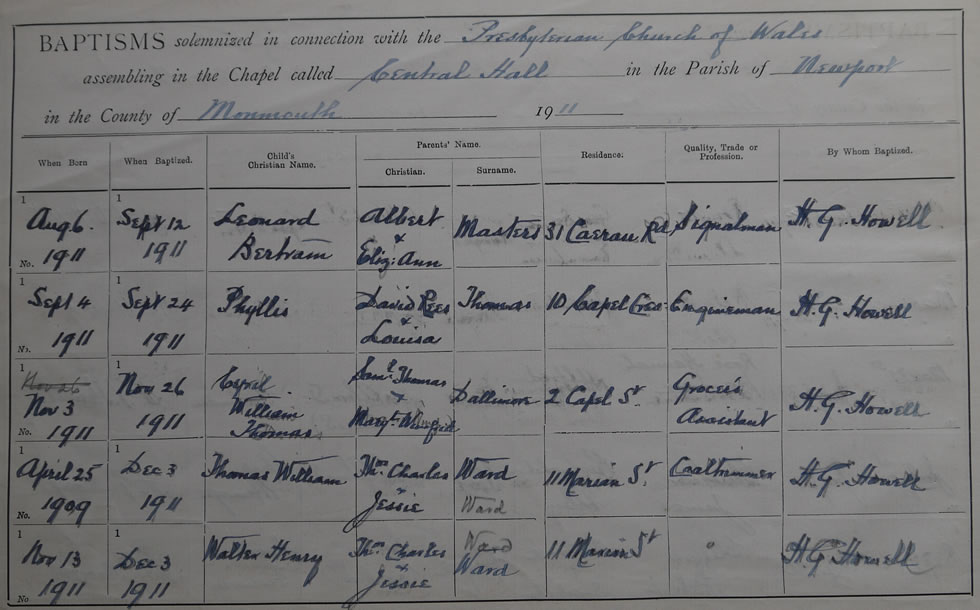 BAPTISMS solemnized in connection with the Presbyterian Church of Wales
assembling in the Chapel called Central Hall in the Parish of Newport
in the County of Monmouth 1911
When Born
When Baptized.
Child's
Christian Name.
Parents' Name.
Christian.
Surname.
Residence.
Quality, Trade or
Profession.
By Whom Baptized.
1
Aug 6.
No. 1911
1
Sept 12
1911
Leonard
Bertram
Albert
+
Eliz: Ann
Masters
31 Caerau Rd
Signalman
H. G. Howell
1
Sept 4
No. 1911
1
Sept 24
1911
Phyllis
David Rees
+
Louisa
Thomas
10 Capel Cres
Engineman
H. G. Howell
1
Nov 26
Nov 3
No. 1911
1
Nov 26
1911
Cyril
William
Thomas
Saml. Thomas
+
Mary Winifred
Dallimore
2 Capel St.
Grocer's
Assistant
H. G. Howell
1
April 25
No. 1909
1
Dec 3
1911
Thomas William
Thos. Charles
+
Jessie
Ward
Ward
11 Marian St.
Coaltrimmer
H. G. Howell
1
Nov 13
No 1911
1
Dec 3
1911
Walter Henry
Thos. Charles
+
Jessie
Ward
Ward
11 Marian St
"
H G Howell